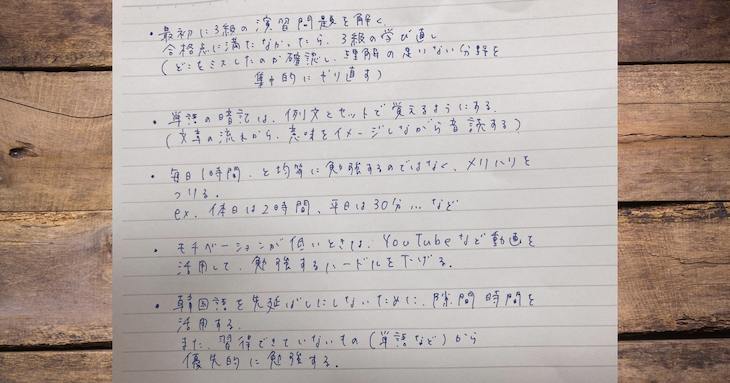 ・最初に3級の演習問題を解く、
合格点に満たなかったら、3級の学び直し
(どこをミスしたのか確認し、理解の足りない分野を
集中的にやり直す)
・単語の暗記は、例文とセットで覚えるようにする。
(文章の流れから、意味をイメージしながら音読する)
・毎日1時間、と均等に勉強するのではなく、メリハリを
つける。
ex. 休日は2時間、平日は30分...など
・モチベーションが低いときは、YouTubeなど動画を
活用して、勉強するハードルを下げる。
・韓国語を先延ばしにしないために、隙間時間を
活用する。
また、習得できていないもの(単語など)から
優先的に勉強する。